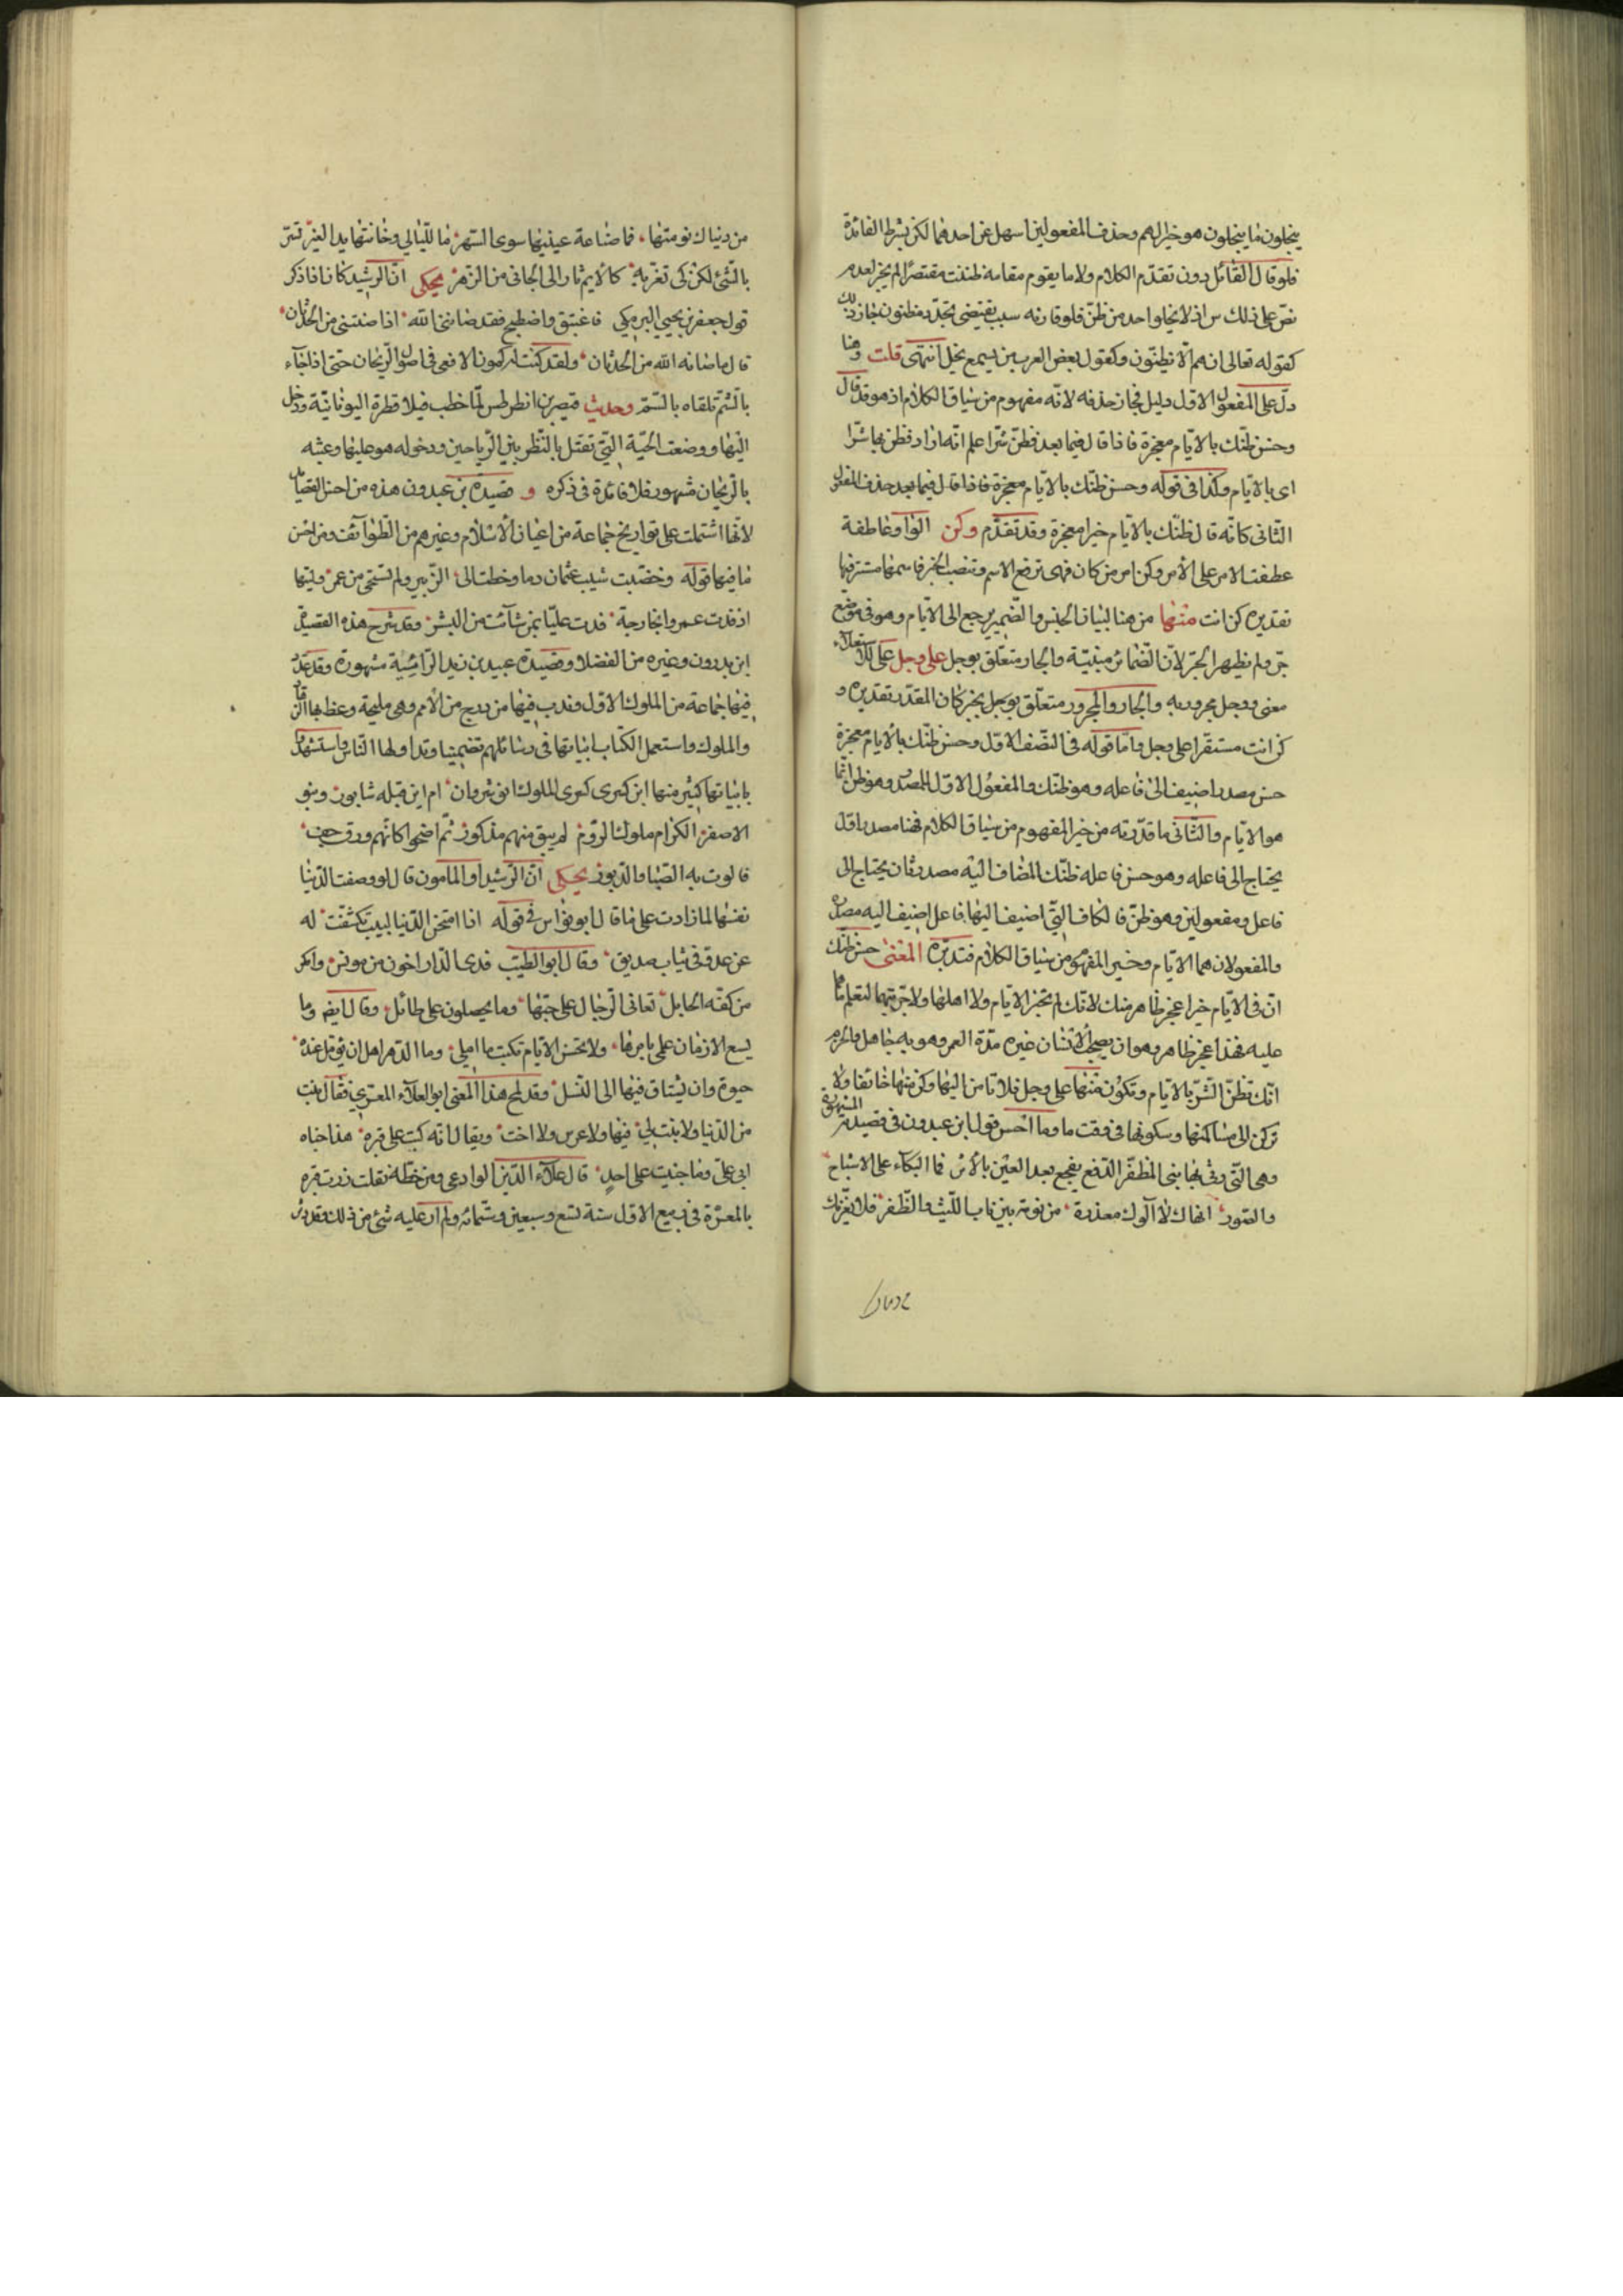 يبخلون ما يبخلون هو خيرا لهم وحذف المفعولين اسهل من احدهما لكن بشرط الفائدة
فلو قال القائل دون تقدم الكلام ولا ما يقوم مقامه ظننت مقتصرا لم يجز لعدم
نص على ذلك س اذ لا يخلو احد من ظن فلو قارنه سبب يقتضى تجدد مظنون جاز ذلك
كقوله تعالى ان هم الا يظنون وكقول بعض العرب من يسمع يخل انتهى قلت وهنا
دل على المفعول الاول دليل فجاز حذفه لانه مفهوم من سياق الكلام اذ هو قد قال
وحسن ظنك بالايام معجزة فاذا قال فيما بعد فظن شرا علم انه اراد فظن بها شرا
اى بالايام وكذا فى قوله وحسن ظنك بالايام معجزة فاذا قال فيما بعد حذف المفعول
الثانى كانه قال ظنك بالايام خيرا معجزة وقد تقدم وكن الواو عاطفة
عطفت الامر على الامر وكن امر من كان فهى ترفع الاسم وتنصب الخبر فاسمها مستتر فيها
تقديره كن انت منها من هنا لبيان الجنس والضمير يرجع الى الايام وهو فى موضع
جر ولم يظهر الجر لان الضمائر مبنية والجار متعلق بوجل على وجل على للاستعلاء
معنى ووجل مجرور به والجار والمجرور متعلق بوجل بخبر كان المقدر تقديره و
كن انت مستقرا على وجل واما قوله فى النصف الاول وحسن ظنك بالايام معجزة
حسن مصدر اضيف الى فاعله وهو ظنك والمفعول الاول للمصدر وهو ظن انما
هو الايام والثانى ما قدرته من خير المفهوم من سياق الكلام فهنا مصدر اول
يحتاج الى فاعله وهو حسن فاعله ظنك المضاف اليه مصدر ثان يحتاج الى
فاعل ومفعولين وهو ظن فالكاف التى اضيف اليها فاعل اضيف اليه مصدره
والمفعولان هما الايام وخير المفهوم من سياق الكلام فتدبره المعنى حسن ظنك
ان فى الايام خيرا عجز ظاهر منك لانك لم تخبر الايام ولا اهلها ولا جربتهما لتعلم ما هما
عليه فهذا عجز ظاهر وهو ان يصحب الانسان غيره مدة العمر وهو به جاهل والحزم
انك تظن الشر بالايام وتكون منها على وجل فلا تامن اليها وكن منها خائفا ولا
تركن الى مسالمتها وسكونها فى وقت ما وما احسن قول ابن عبدون فى قصيدته المشهورة
وهى التى رثى بها بنى المظفر الدهر يفجع بعد العين بالاثر فما البكاء على الاشباح
والصور انهاك لا آلوك معذرة من نومة بين ناب الليث والظفر فلا يغرنك
من دنياك نومتها فما صناعة عينيها سوى السهر ما لليالى وخانتها يد الغير تسر
بالشئ لكن كى تغر به كالايم ثار الى الجانى من الزهر يحكى ان الرشيد كان اذا ذكر
قول جعفر بن يحيى البرمكى فاغتبق واصطبح فقد صاننى الله اذا صنتنى من الحدثان
قال ما صانه الله من الحدثان ولقد كنت له كمون الافعى فى اصول الريحان حتى اذا جاء
بالشم تلقاه بالسم وحديث قيصر بن انطرطس لما خطب فيلاوقطرة اليونانية ودخل
اليها ووضعت الحية التى تقتل بالنظر بين الرياحين ودخوله هو عليها وعبثه
بالريحان مشهور فلا فائدة فى ذكره و قصيدة بن عبدون هذه من احسن القصائد
لانها اشتملت على تواريخ جماعة من اعيان الاسلام وغيرهم من الطوائف ومن احسن
ما فيها قوله وخضبت شيب عثمان دما وخطت الى الزبير ولم تستحى من عمر وليتها
اذ فدت عمرا بخارجة فدت عليا بمن شاءت من البشر وقد شرح هذه القصيدة
ابن بدرون وغيره من الفضلا وقصيدة عبيد بن زيد الرائية مشهورة وقد عدد
فيها جماعة من الملوك الاول وندب فيها من درج من الامم وهى مليحة وعظ بها
والملوك واستعمل الكتاب ابياتها فى رسائلهم تضمينا وتداولها الناس واستشهدوا
بابياتها كثير منها اين كسرى كسرى الملوك انوشروان ام اين قبله شابور وبنو
الاصفر الكرام ملوك الروم لم يبق منهم مذكور ثم اضحوا كانهم ورق جف
فالوت به الصبا والدبور يحكى ان الرشيد او المامون قال لو وصفت الدنيا
نفسها لما زادت على ما قال ابو نواس فى قوله اذا امتحن الدنيا لبيب تكشفت له
عن عدو فى ثياب صديق وقال ابو الطيب فدى الدار اخون من مومس وامكر
من كفة الحابل تفانى الرجال على حبها وما يحصلون على طائل وقال ايضا وما
يسع الازمان علمى بامرها ولا تحسن الايام تكتب ما املى وما الدهر اهل ان يؤمل عنده
حيوة وان يشتاق فيها الى النسل وقد لمح هذا المعنى ابو العلاء المعرى فقال بنت
من الدنيا ولا بنت لى فيها ولا عرس ولا اخت ويقال انه كتب على قبره هذا جناه
ابى على وما جنيت على احد قال علاء الدين الوادعى ومن خطه نقلت زرت قبره
بالمعرة فى ربيع الاول سنة تسع وسبعين وستمائة ولم ار عليه شئ من ذلك وقد دثر